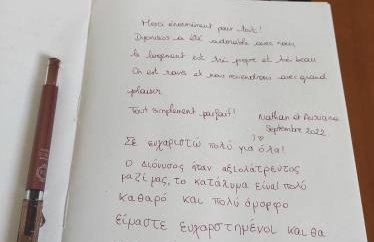 Merci énormément pour tout!
Dyonisos a été adorable avec nous
le logement est très propre et très beau
On est ravis et nous reviendrons avec grand
plaisir
Tout simplement parfait!
Nathan et
Septembre 2022
Σε ευχαριστώ πολύ για όλα!
Ο Διόνυσος ήταν αξιολάτρευτος
μαζί μας, το κατάλυμα είναι πολύ
καθαρό και πολύ όμορφο
είμαστε ευχαριστημένοι και θα